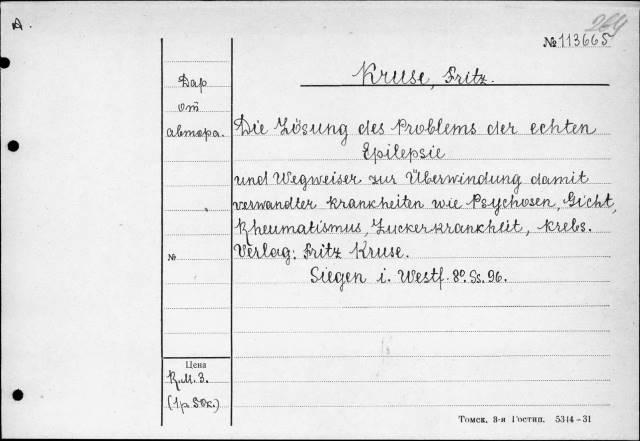 А.
264
№ 113665
Kruse, Fritz.
Дар
от
автора.
Die Lösung des Problems der echten
Epilepsie
und Wegweiser zur Überwindung damit
verwandter Krankheiten wie Psychosen, Gicht,
Rheumatismus, Zuckerkrankheit, Krebs.
Verlag: Fritz Kruse.
№
Siegen i. Westf. 8º. Ss. 96.
Цена
R.M. 3.
(1р. 50к.)
Томск. 3-я Гостип. 5344-31